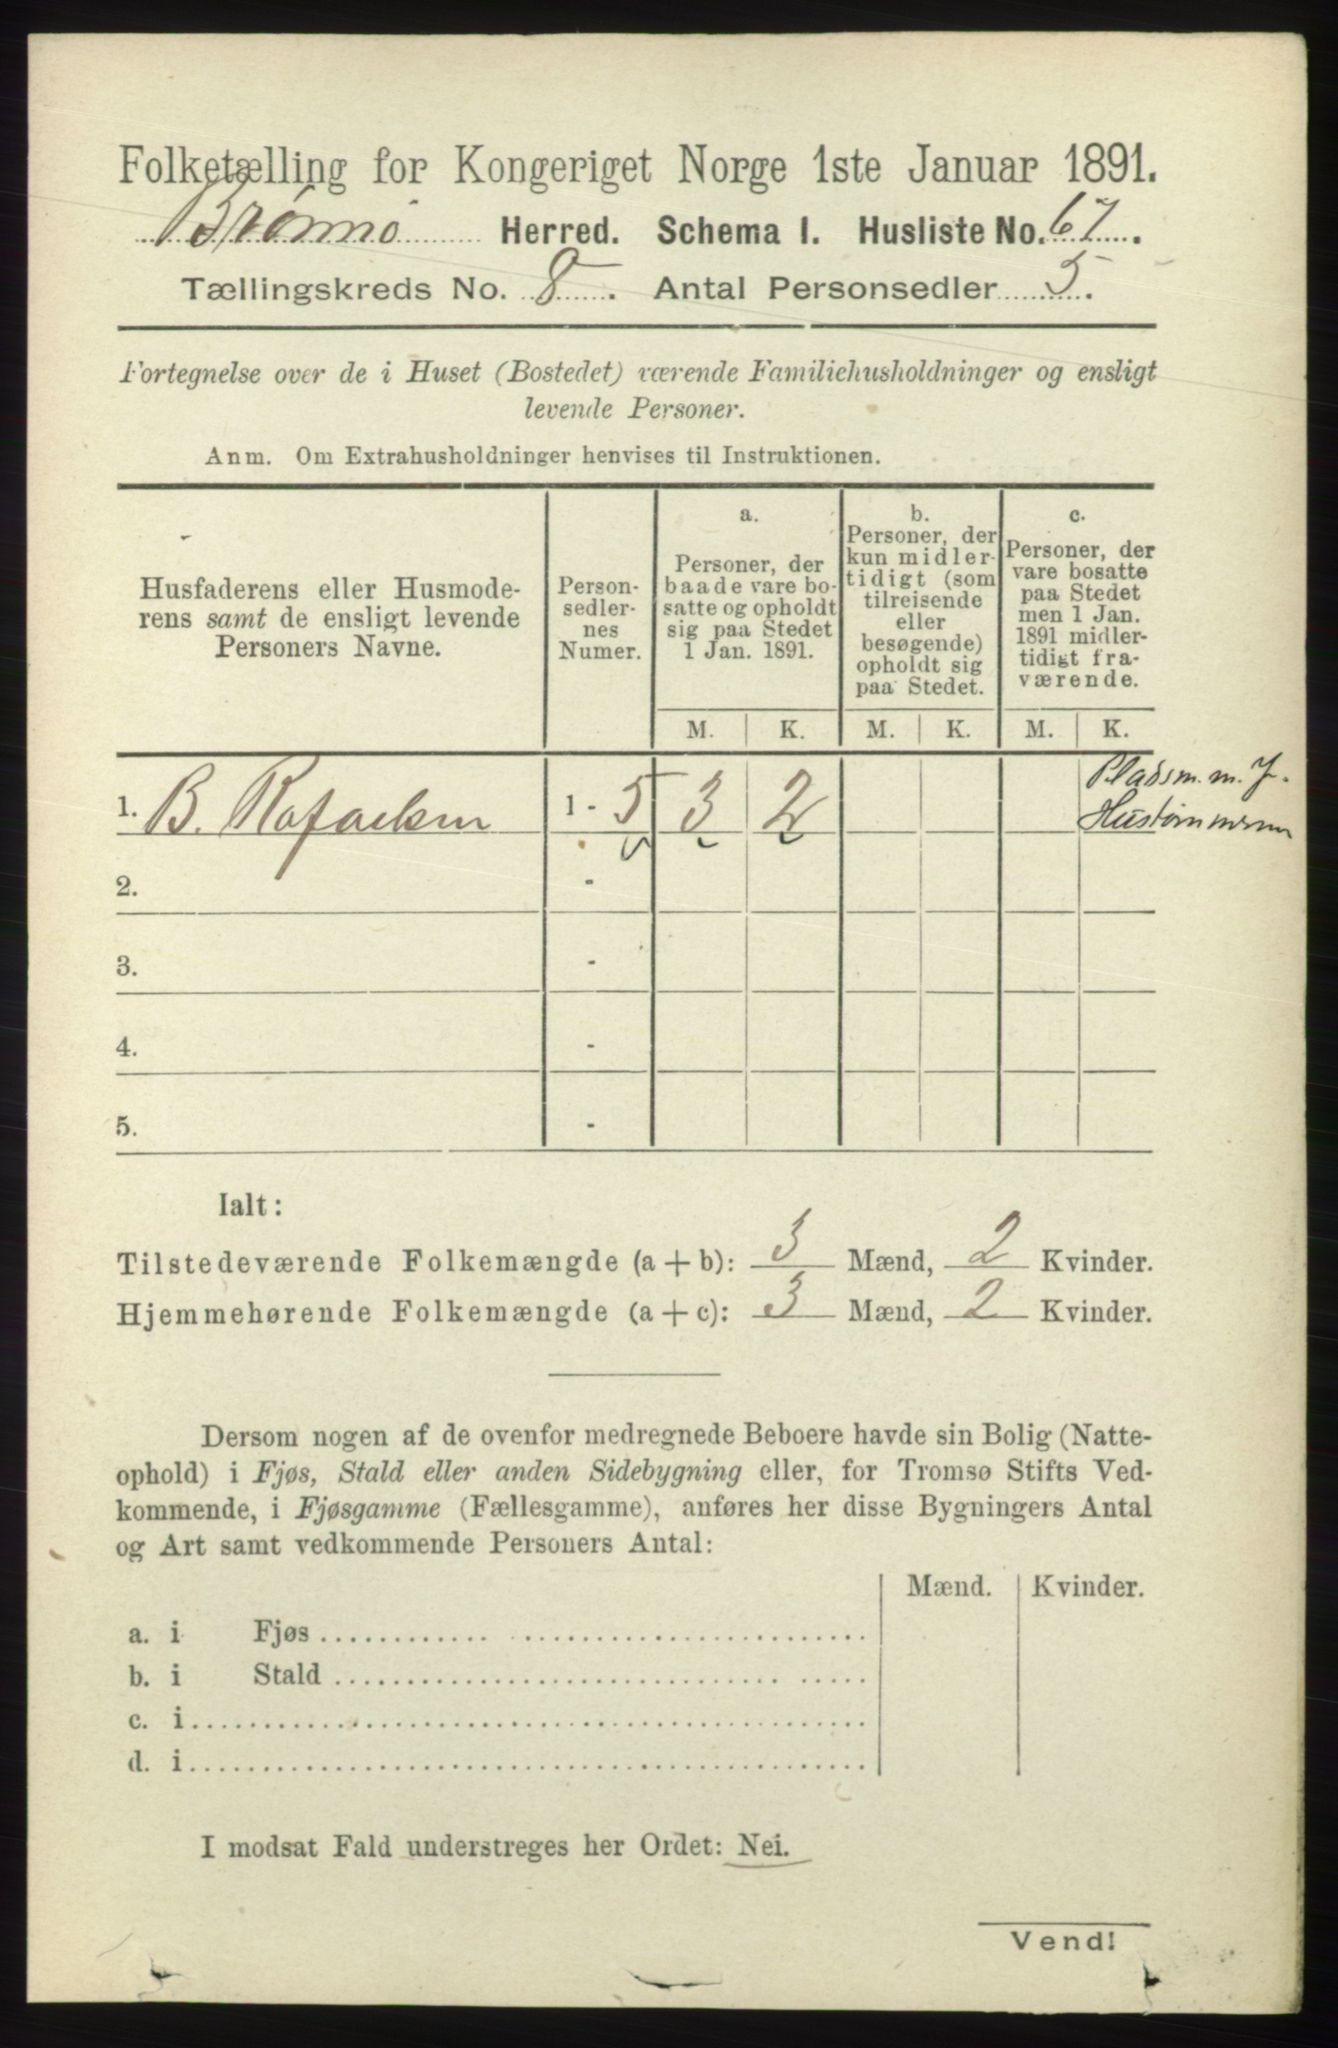 Folketælling for Kongeriget Norge 1ste Januar 1891.
Brønnø Herred. Schema I. Husliste No. 67.
Tællingskreds No. 8. Antal Personsedler 5.
Fortegnelse over de i Huset (Bostedet) værende Familiehusholdninger og ensligt
levende Personer.
Anm. Om Extrahusholdninger henvises til Instruktionen.
Husfaderens eller Husmode-
rens samt de ensligt levende
Personers Navne.
Person-
sedler-
nes
Numer.
a.
Personer, der
baade vare bo-
satte og opholdt
sig paa Stedet
1 Jan. 1891.
b.
Personer, der
kun midler-
tidigt (som
tilreisende
eller
besøgende)
opholdt sig
paa Stedet.
c.
Personer, der
vare bosatte
paa Stedet
men 1 Jan.
1891 midler-
tidigt fra-
værende.
M. K. M. K. M. K.
1. B. Rafaelsen 1 - 5 3 2
Pladsm. m. J.
Hustømmerm
2. -
3. -
4. -
5. -
Ialt:
Tilstedeværende Folkemængde (a + b): 3 Mænd, 2 Kvinder.
Hjemmehørende Folkemængde (a + c): 3 Mænd, 2 Kvinder.
Dersom nogen af de ovenfor medregnede Beboere havde sin Bolig (Natte-
ophold) i Fjøs, Stald eller anden Sidebygning eller, for Tromsø Stifts Ved-
kommende, i Fjøsgamme (Fællesgamme), anføres her disse Bygningers Antal
og Art samt vedkommende Personers Antal:
Mænd. Kvinder.
a. i Fjøs
b. i Stald
c. i
d. i
I modsat Fald understreges her Ordet: Nei.
Vend!